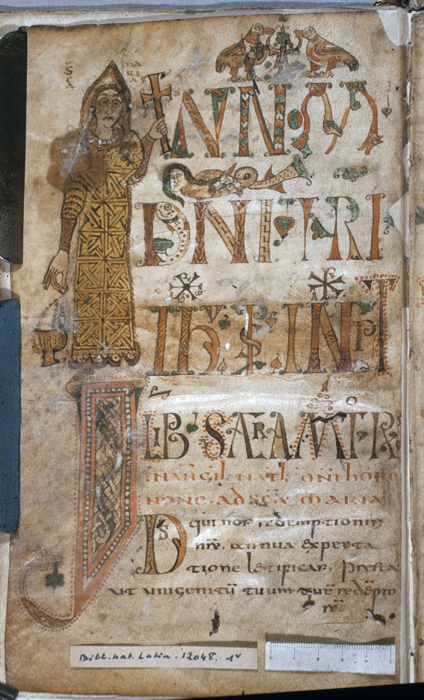 MARIA
INNOM
DNI NTRI
LIB SACRAMTR
IN UIGIL NATL DNI HORA
NONE AD SCA MARIA
DS qui nos redemptionis
nrē annua expecta
tione letificas presta
ut unigenitū tuum quē redēpto
rē
Bibl. nat. Latin. 12048. 1v